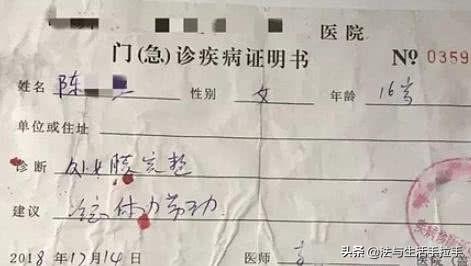 医院
门(急)诊疾病证明书 № 0359
姓名 陈 性别 女 年龄 16岁
单位或住址
诊断 处女膜完整
建议 体力劳动
2018年12月14日 医师 医院
头条 @法与生活手拉手